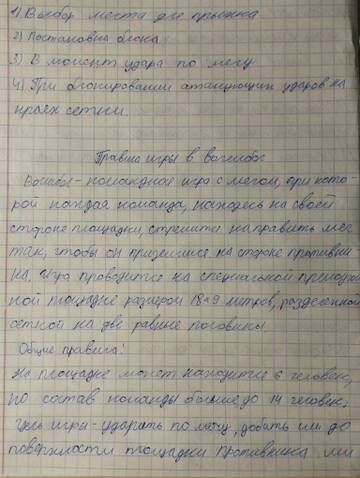 1) Выбор места для прыжка
2) Постановка блока
3) В момент удара по мячу
4) При блокировании атакующих ударов на
краях сетки.
Правила игры в волейбол
Волейбол - командная игра с мячом, при кото-
рой каждая команда, находясь на своей
стороне площадки, стремится направить мяч
так, чтобы он приземлился на стороне противни
ка. Игра проводится на специальной прямоуголь
ной площадке размером 18×9 метров, разделенной
сеткой на две равные половины
Общие правила:
На площадке может находится 6 человек,
но состав команды больше до 14 человек.
Цель игры - ударять по мячу, добить им до
поверхности площадки противника или